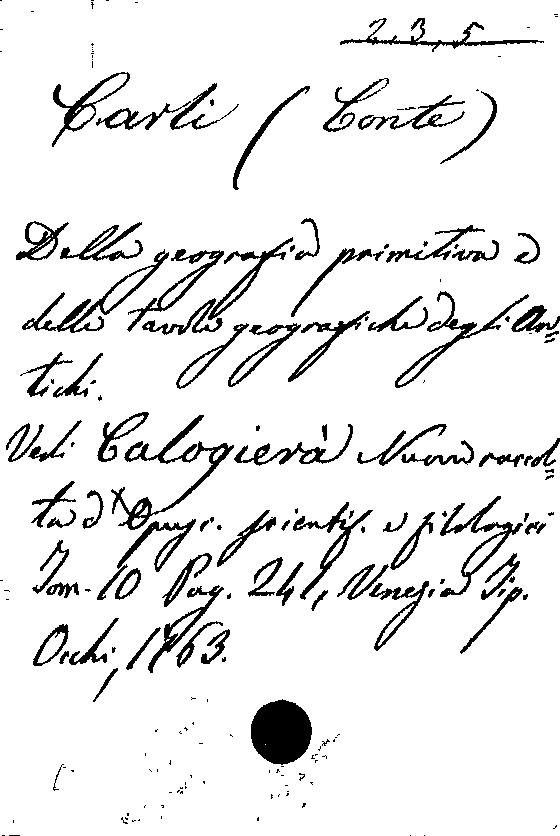 2.3,5
Carli (Conte)
Della geografia primitiva e
delle tavole geografiche degli An=
tichi.
Vedi Calogierà Nuova raccol=
ta d'Opusc. scientif. e filologici
Tom. 10 Pag. 241, Venezia Tip.
Occhi, 1763.